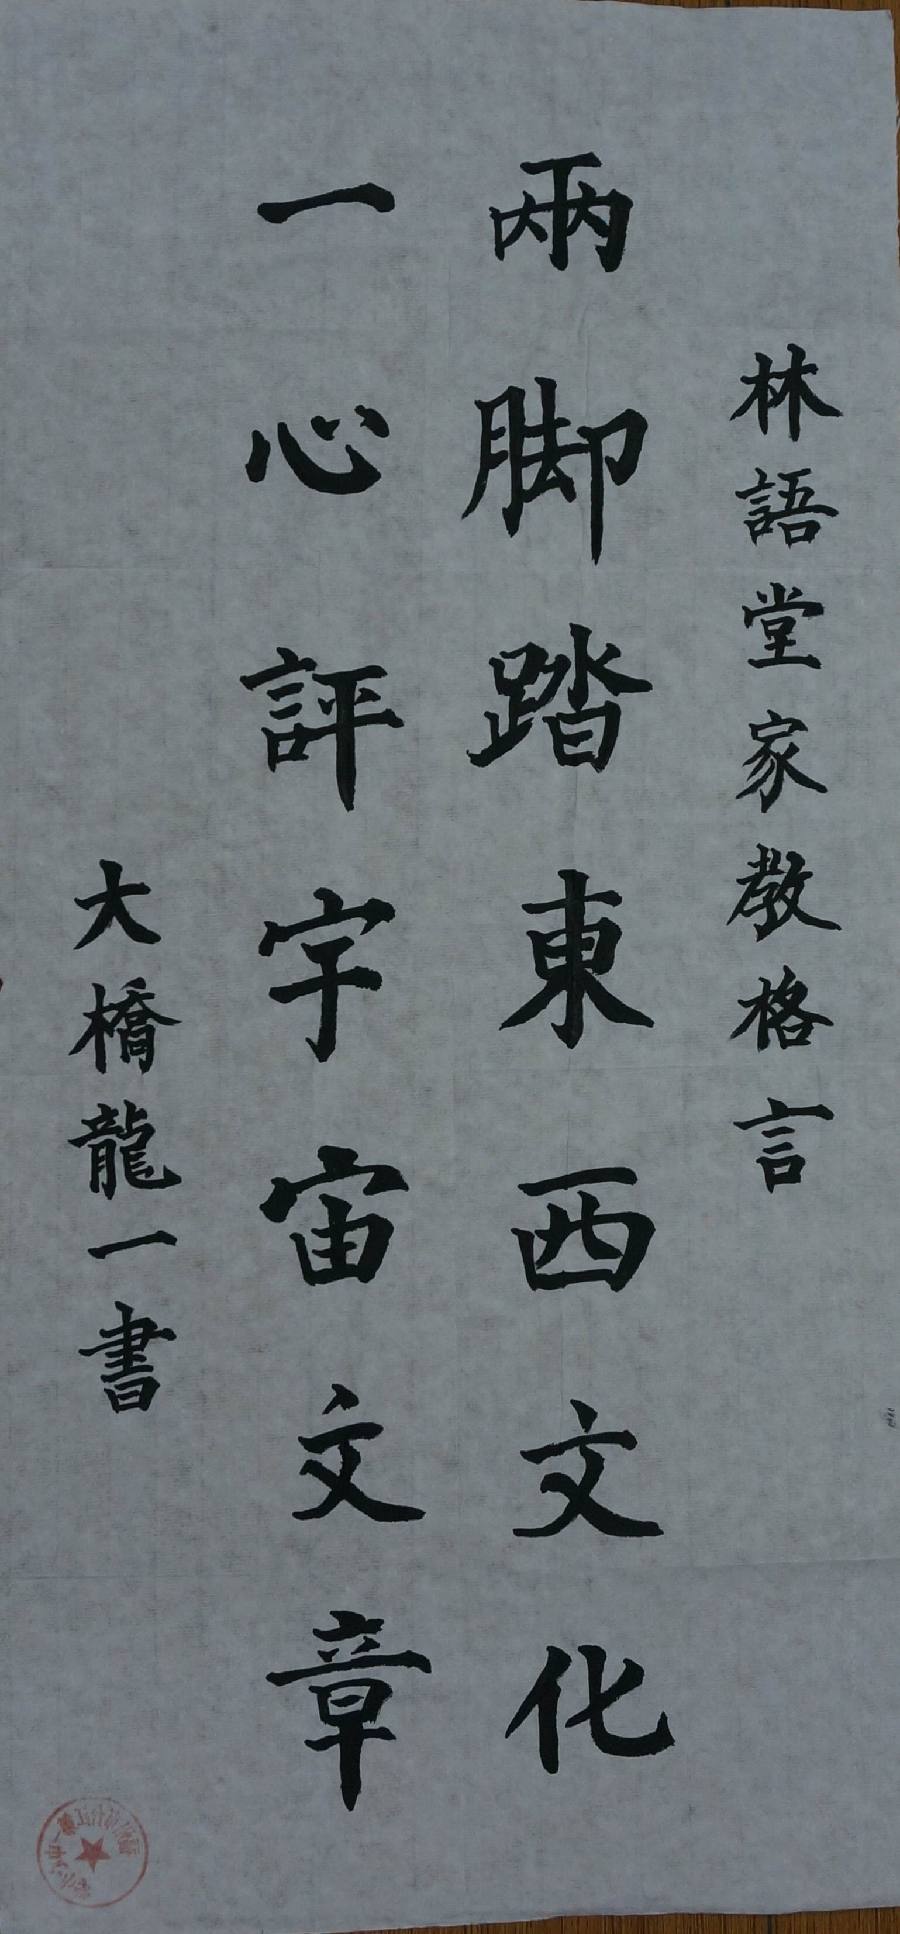 林語堂家教格言
兩脚踏東西文化
一心評宇宙文章
大橋龍一書